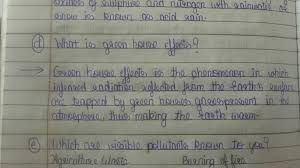 oxides of sulphur and nitrogen with rainwater of
snow is known as acid rain.
(d) What is green house effects?
→ Green house effects is the phenomenon in which
infrared radiation reflected from the Earth's surface
are trapped by green houses present in the
atmosphere, thus making the Earth warm.
(e) Which are visible pollutants known to you?
Agriculture Waste Burning of